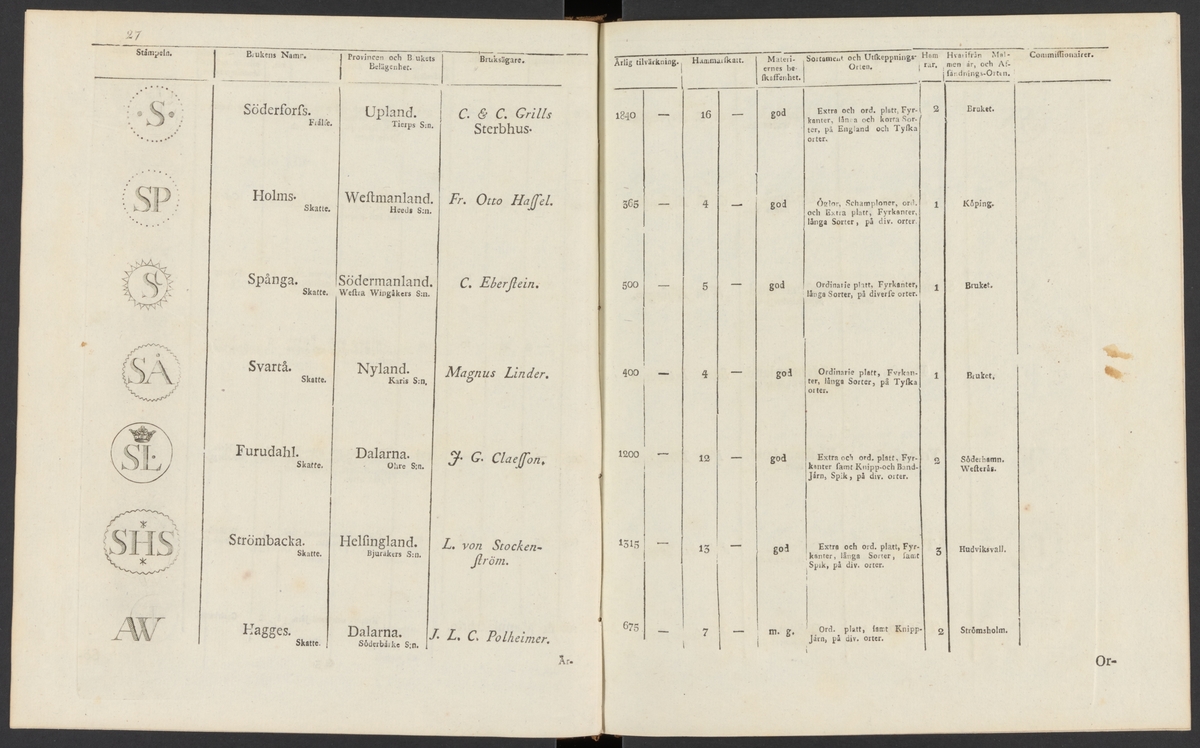 27
Stämpeln.
Brukens Namn.
Provincen och Brukets
Belägenhet.
Bruksägare.
·S·
Söderforſs.
Frälſe.
Upland.
Tierps S:n.
C. & C. Grills
Sterbhus.
SP
Holms.
Skatte.
Weſtmanland.
Heeds S:n.
Fr. Otto Haſſel.
S
Spånga.
Skatte.
Södermanland.
Weſtra Wingåkers S:n.
C. Eberſtein.
SÅ
Svartå.
Skatte.
Nyland.
Karis S:n.
Magnus Linder.
SL
Furudahl.
Skatte.
Dalarna.
Ohre S:n.
J. G. Claeſſon.
*
SHS
*
Strömbacka.
Skatte.
Helſingland.
Bjuråkers S:n.
L. von Stocken-
ſtröm.
AW
Hagges.
Skatte.
Dalarna.
Söderbärke S:n.
J. L. C. Polheimer.
År-
Årlig tilvärkning.
Hammarſkatt.
Materi-
ernes be-
ſkaffenhet.
Sortament och Utſkeppnings-
Orten.
Ham
rar.
Hvarifrån Mal-
men är, och Af-
ſändnings-Orten.
Commiſſionairer.
1840 — 16 — god
Extra och ord. platt, Fyr-
kanter, långa och korta Sor-
ter, på England och Tyſka
orter.
2
Bruket.
365 — 4 — god
Öglor, Schamploner, ord.
och Extra platt, Fyrkanter,
långa Sorter, på div. orter.
1
Köping.
500 — 5 — god
Ordinarie platt, Fyrkanter,
långa Sorter, på diverſe orter.
1
Bruket.
400 — 4 — god
Ordinarie platt, Fyrkan-
ter, långa Sorter, på Tyſka
orter.
1
Bruket.
1200 — 12 — god
Extra och ord. platt, Fyr-
kanter ſamt Knipp-och Band-
Järn, Spik, på div. orter.
2
Söderhamn.
Weſterås.
1315 — 13 — god
Extra och ord. platt, Fyr-
kanter, långa Sorter, ſamt
Spik, på div. orter.
3
Hudviksvall.
675 — 7 — m. g.
Ord. platt, ſamt Knipp-
Järn, på div. orter.
2
Strömsholm.
Or-